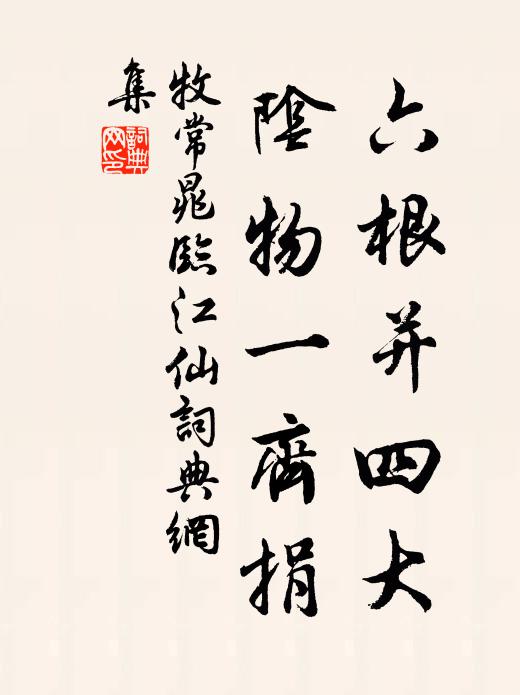 六根并四大
陰物一齊捐
牧常晁臨江仙詞典網
集
詞典網印